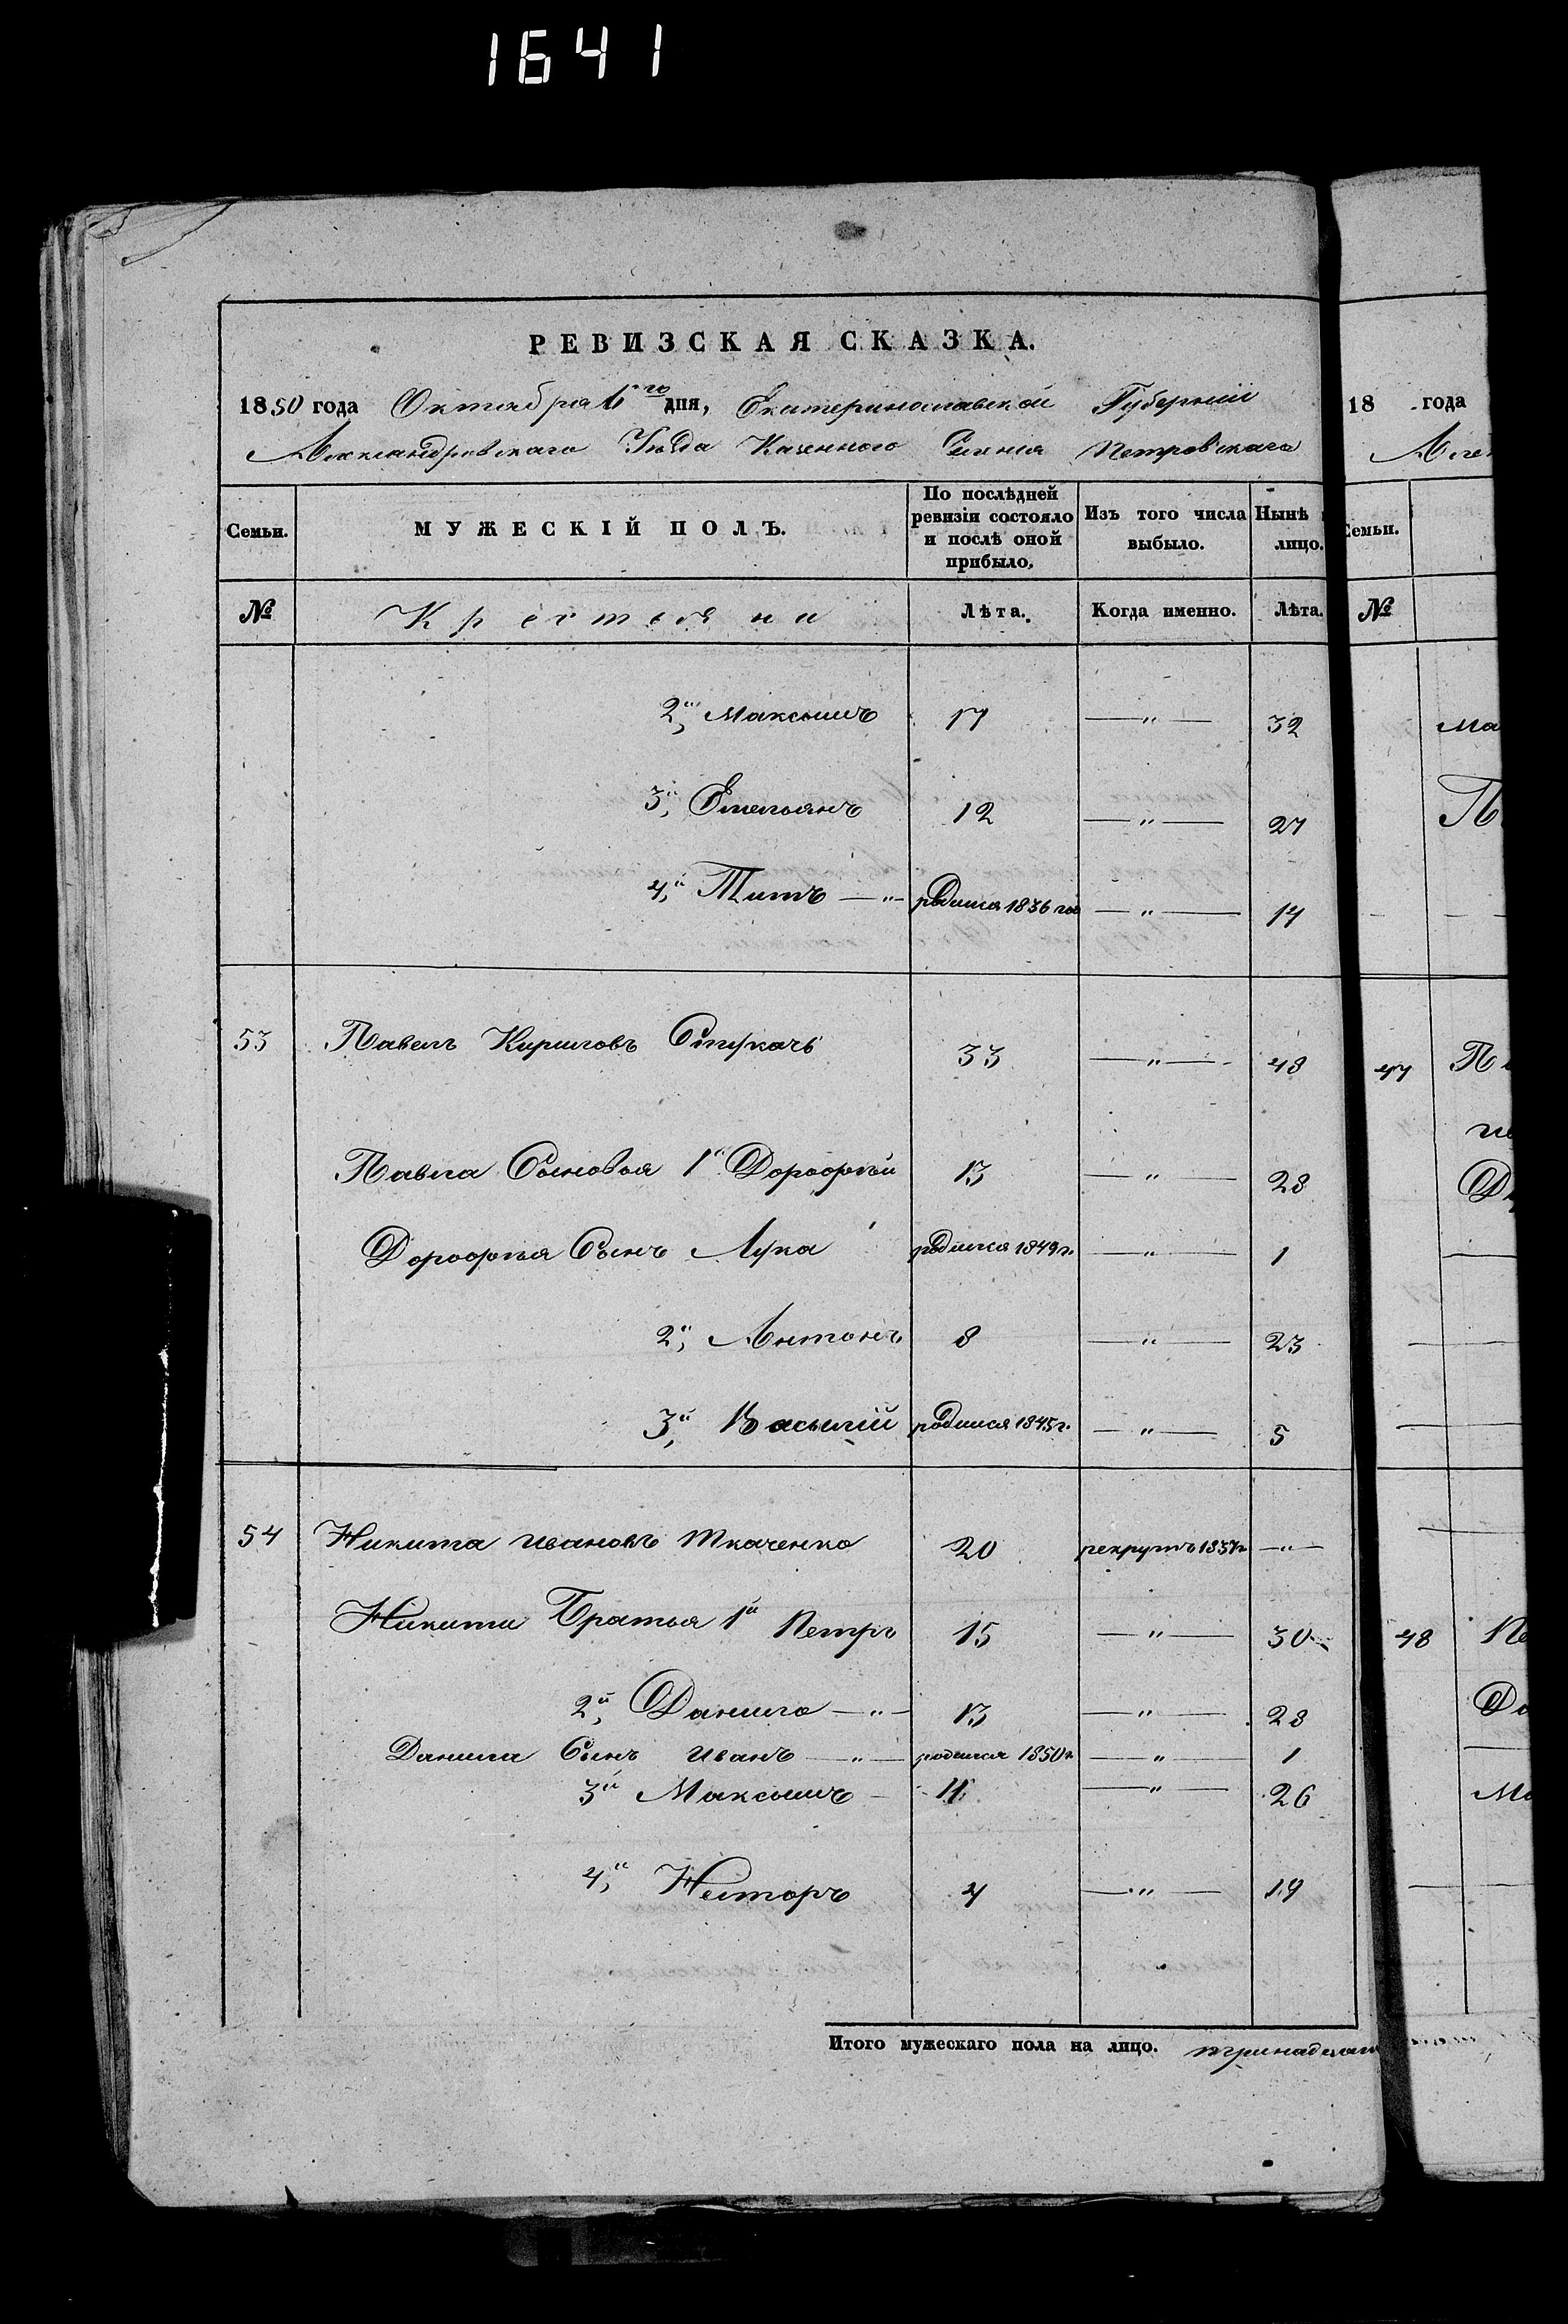 1641
РЕВИЗСКАЯ СКАЗКА.
1850 года Октября 6го дня, Екатеринославской Губерніи
Александровскаго Уѣзда Казенного Селенія Петровскаго
Семьи. МУЖЕСКІЙ ПОЛЪ. По послѣдней ревизіи состояло и послѣ оной прибыло. Изъ того числа выбыло. Нынѣ лицо.
№ Крестьяни Лѣта. Когда именно. Лѣта.
2й, Максымъ 17 —"— 32
3й, Емельянъ 12 —"— 27
4й, Титъ —"— родился 1836 год —"— 14
53 Павелъ Кириловъ Стукачь 33 —"— 48
Павла Сыновья 1й Дорофѣй 13 —"— 28
Дорофѣя Сынъ Лука родился 1849 г. —"— 1
2й, Антонъ 8 —"— 23
3й, Васылій родился 1845 г. —"— 5
54 Никита Ивановъ Ткаченко 20 рекрутъ 1837 г —"—
Никиты Братья 1й Петръ 15 —"— 30
2й, Данило —"— 13 —"— 28
Данила Сынъ Иванъ —"— родился 1850 г. —"— 1
3й Максымъ — 11 —"— 26
4й, Несторъ 4 —"— 19
Итого мужескаго пола на лицо. тринадцат
18 года
Семьи.
№
47
48